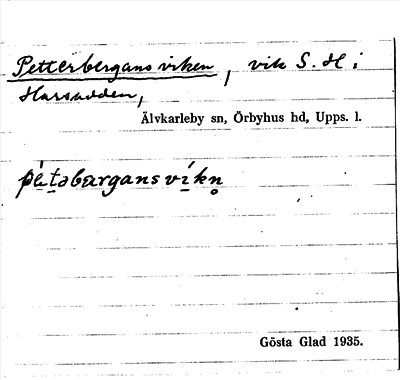 Petterbergans viken, vik S. H i
Harsudden,
Älvkarleby sn, Örbyhus hd, Upps. l.
pètəbærgans víkn̥
Gösta Glad 1935.